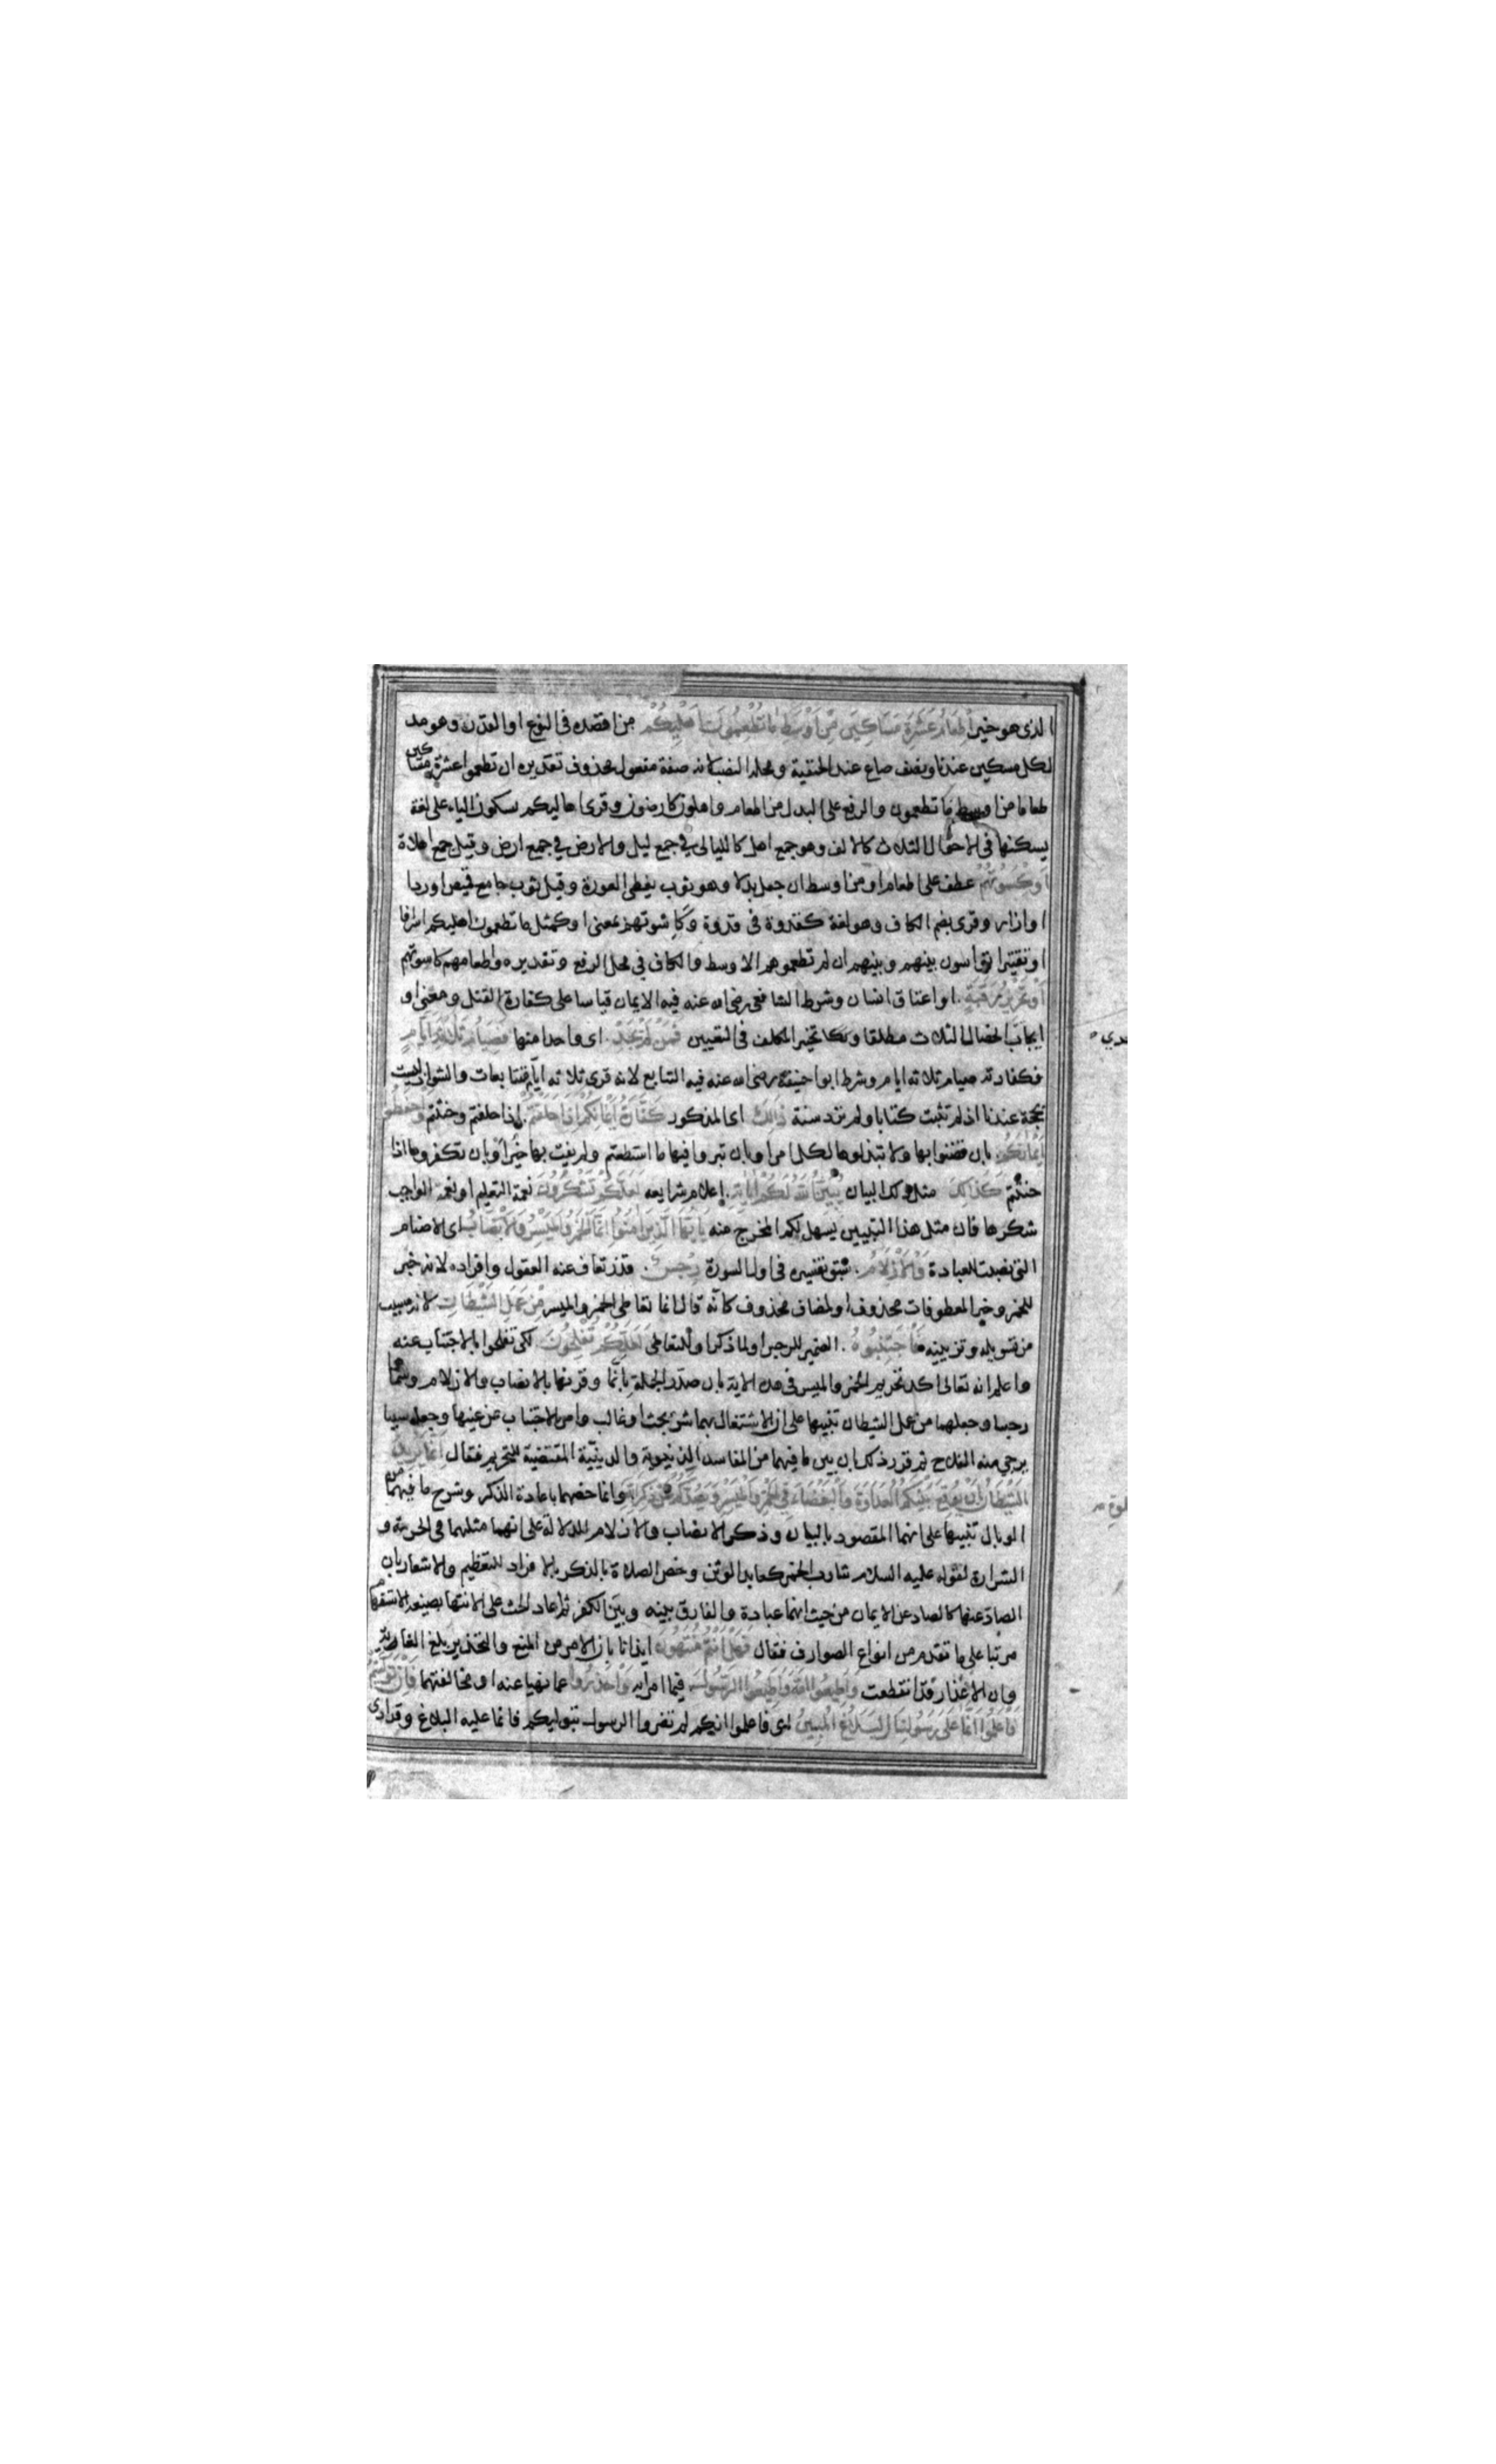 الذى هو خير اطعام عشرة مساكين من اوسط ما تطعمون اهليكم من اقصده فى النوع او القدر وهو مد
لكل مسكين عندنا ونصف صاع عند الحنفية ومحله النصب لانه صفة مفعول محذوف تقديره ان تطعموا عشرة مساكين
طعاما من اوسط ما تطعمون والرفع على البدل من اطعام واهلون كارضون وقرى اهاليكم بسكون الياء على لغة
يسكنها فى الاحوال الثلاث كالالف وهو جمع اهل كالليالى فى جمع ليل والارض فى جميع ارض وقيل جمع اهلاة
او كسوتهم عطف على اطعام او من اوسط ان جعل بدلا وهو ثوب يغطى العورة وقيل ثوب جامع قميص او ردا
او ازار وقرى بضم الكاف وهو لغة كقدوة فى قدوة وكاسوتهم بمعنى او كمثل ما تطعمون اهليكم اسرافا
او تقتيرا تواسون بينهم وبينهم ان لم تطعموهم الاوسط والكاف فى محل الرفع وتقديره واطعامهم كاسوتهم
او تحرير رقبة او اعتاق انسان وشرط الشافعى رضى الله عنه فيه الايمان قياسا على كفارة القتل ومعنى او
ايجاب الخصال الثلاث مطلقا و تخير المكلف فى التعيين فمن لم يجد اى واحدا منها فصيام ثلاثة ايام
فكفارته صيام ثلاثه ايام وشرط ابو احنيفة رضى الله عنه فيه التتابع لانه قرى ثلاثه ايام متتابعات والشواذ ليست
بحجة عندنا اذ لم تثبت كتابا ولم ترد سنة ذالك اى المذكور كفارة ايمانكم اذا حلفتم اذا حلفتم وحنثتم واحفظوا
ايمانكم بان تضنوا بها ولا تبذلوها لكل امر او بان تبروا فيها ما استطعتم ولم يفت بها خير او بان تكفروها اذا
حنثتم كذالك مثل ذلك البيان يبين الله لكم اياته اعلام شرايعه لعلكم تشكرون نعمة التعليم او نعمه الواجب
شكرها فان مثل هذا التبيين يسهل لكم المخرج منه يايها الذين امنوا انما الخمر والميسر والانصاب اى الاصنام
التى نصبت للعبادة والازلام سبق تفسيره فى اول السورة رجس قذر تعاف عنه العقول وافراده لانه خبر
للخمر وخبر المعطوفات محذوف او لمضاف محذوف كانه قال انما تعاطى الخمر والميسر من عمل الشيطان لانه مسبب
من تسويله وتزيينه فاجتنبوه الضمير للرجس او لما ذكر او للتعاطى لعلكم تفلحون لكى تفلحوا بالاجتناب عنه
واعلم انه تعالى اكد تحريم الخمر والميسر فى هذه الاية بان صدر الجملة بانما وقرنها بالانصاب والازلام وسماها
رجسا وجعلهما من عمل الشيطان تنبيها على ان الاشتغال بهما شر بحث او غالب وامر الاجتناب عن عينها وجعله سببا
يرجى منه الفلاح ثم قرر ذلك بان بين ما فيهما من المفاسد الدنيوية والدينية المقتضية للتحريم فقال انما يريد
الشيطان ان يوقع بينكم العداوة والبغضاء فى الخمر والميسر ويصدكم عن ذكر الله وانما خصهما باعادة الذكر وشرح ما فيهما من
الوبال تنبيها على انهما المقصود بالبيان وذكر الانصاب والازلام للدلالة على انهما مثلهما فى الحرمة و
الشرارة لقوله عليه السلام شارب الخمر كعابد الوثن وخص الصلاة بالذكر بالافراد للتعظيم والاشعار بان
الصاد عنها كالصاد عن الايمان من حيث انها عبادة والفارق بينه وبين الكفر ثم اعاد الحث على الانتها بصيغة الاستفهام
مرتبا على ما تقدم من انواع الصوارف فقال فهل انتم منتهون ايذانا بان الامر من المنع والتحذير بلغ الغاية
وان الاعذار قد انقطعت واطيعوا الله واطيعوا الرسول فيما امرا به واحذروا عما نهيا عنه او مخالفتهما فان توليتم
فاعلموا انما على رسولنا البلاغ المبين اى فاعلموا انكم لم تضروا الرسول بتوليكم فانما عليه البلاغ وقد ادى